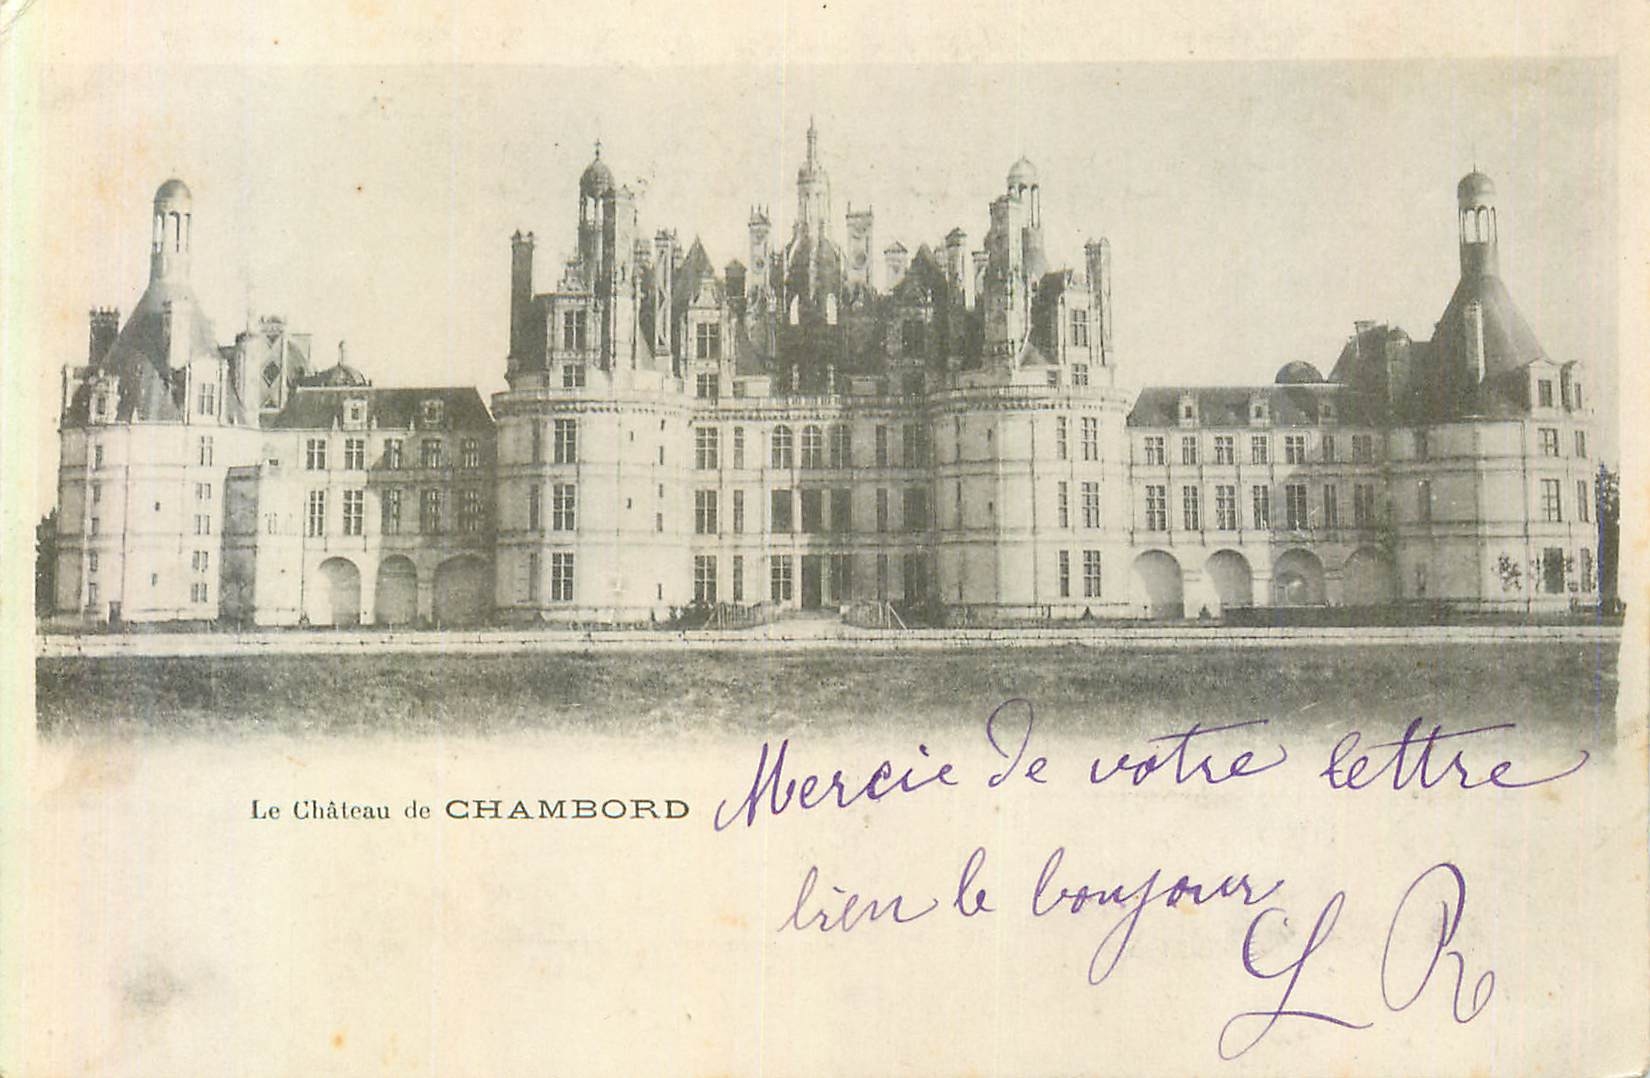 Le Château de CHAMBORD
Mercie de votre lettre
bien le bonjour
L R